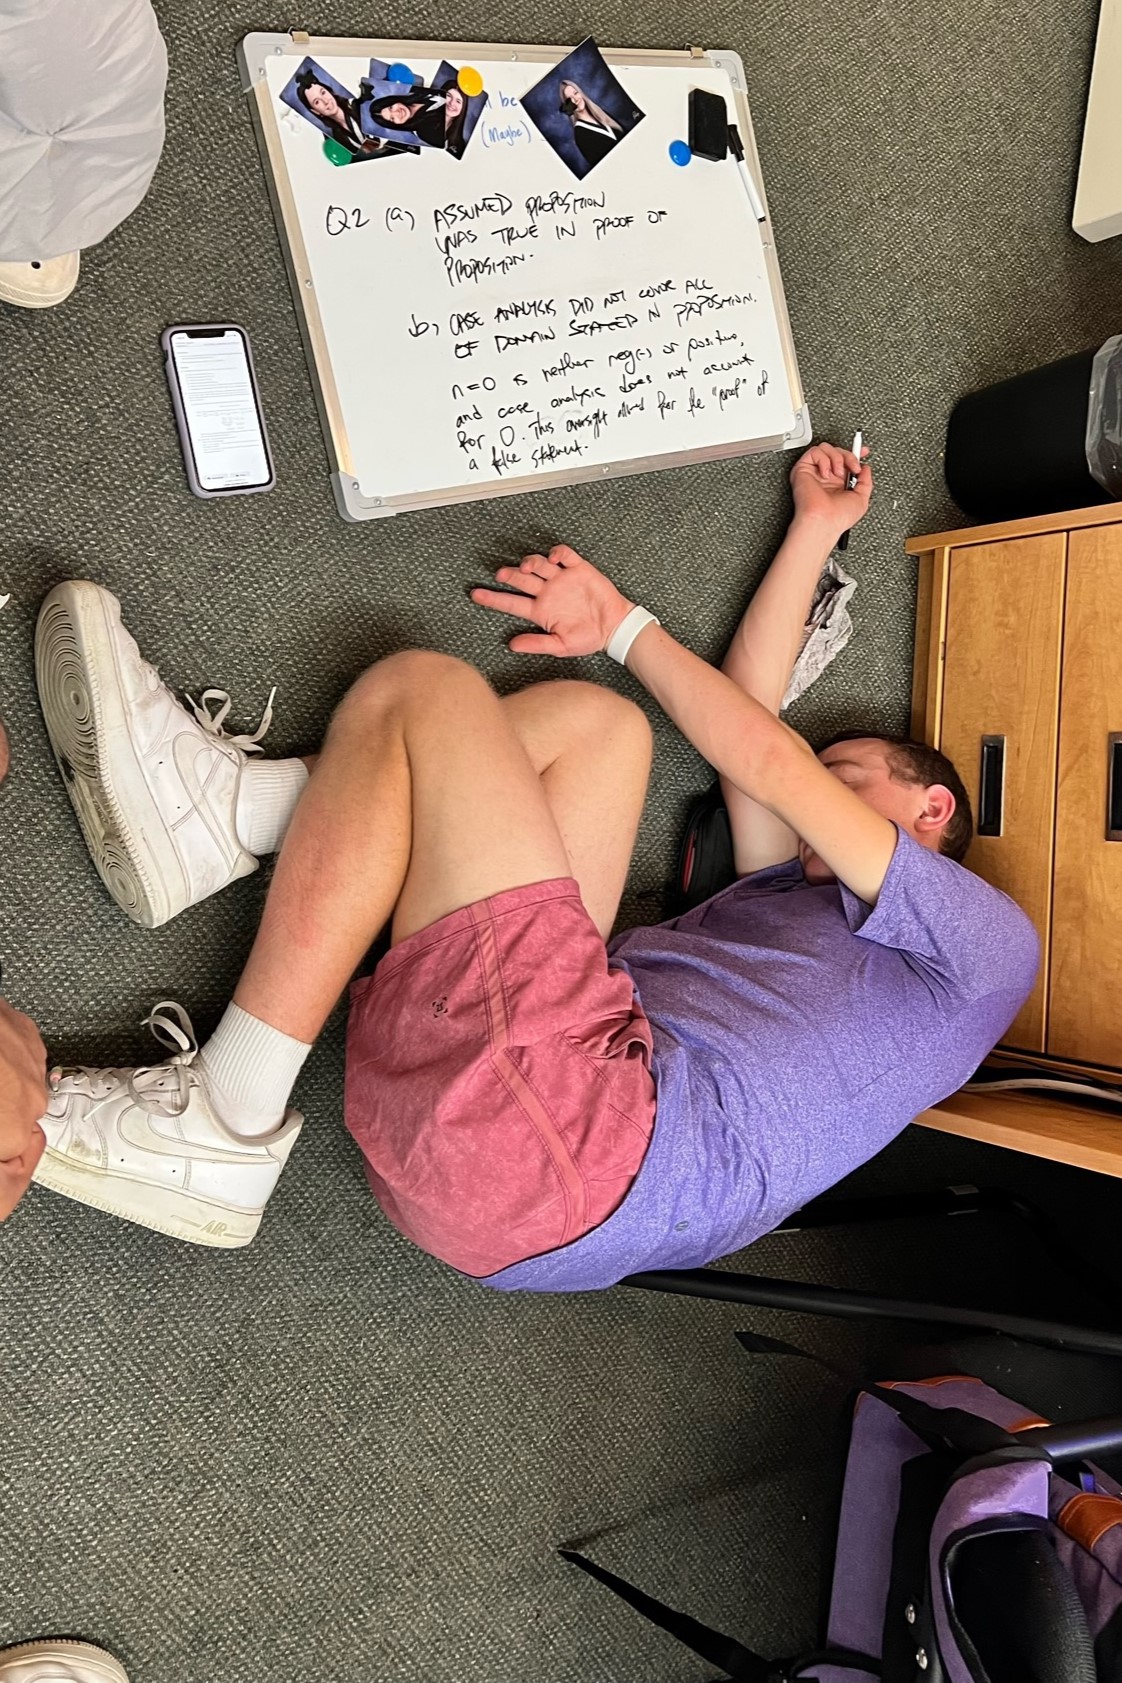 l be
(Maybe)
Q2 (a) ASSUMED PROPOSITION
WAS TRUE IN PROOF OF
PROPOSITION.
b) CASE ANALYSIS DID NOT COVER ALL
OF DOMAIN STATED IN PROPOSITION.
n=0 is neither neg(-) or positive,
and case analysis does not account
for 0. This oversight allowed for the "proof" of
a false statement.
AIR